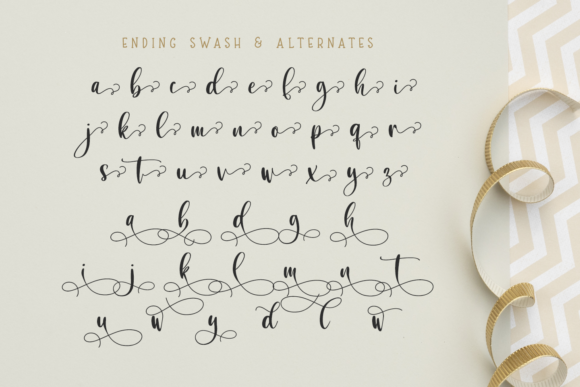 ENDING SWASH & ALTERNATES
a b c d e f g h i
j k l m n o p q r
s t u v w x y z
a b d g h
i j k l m n t
u w y d l w